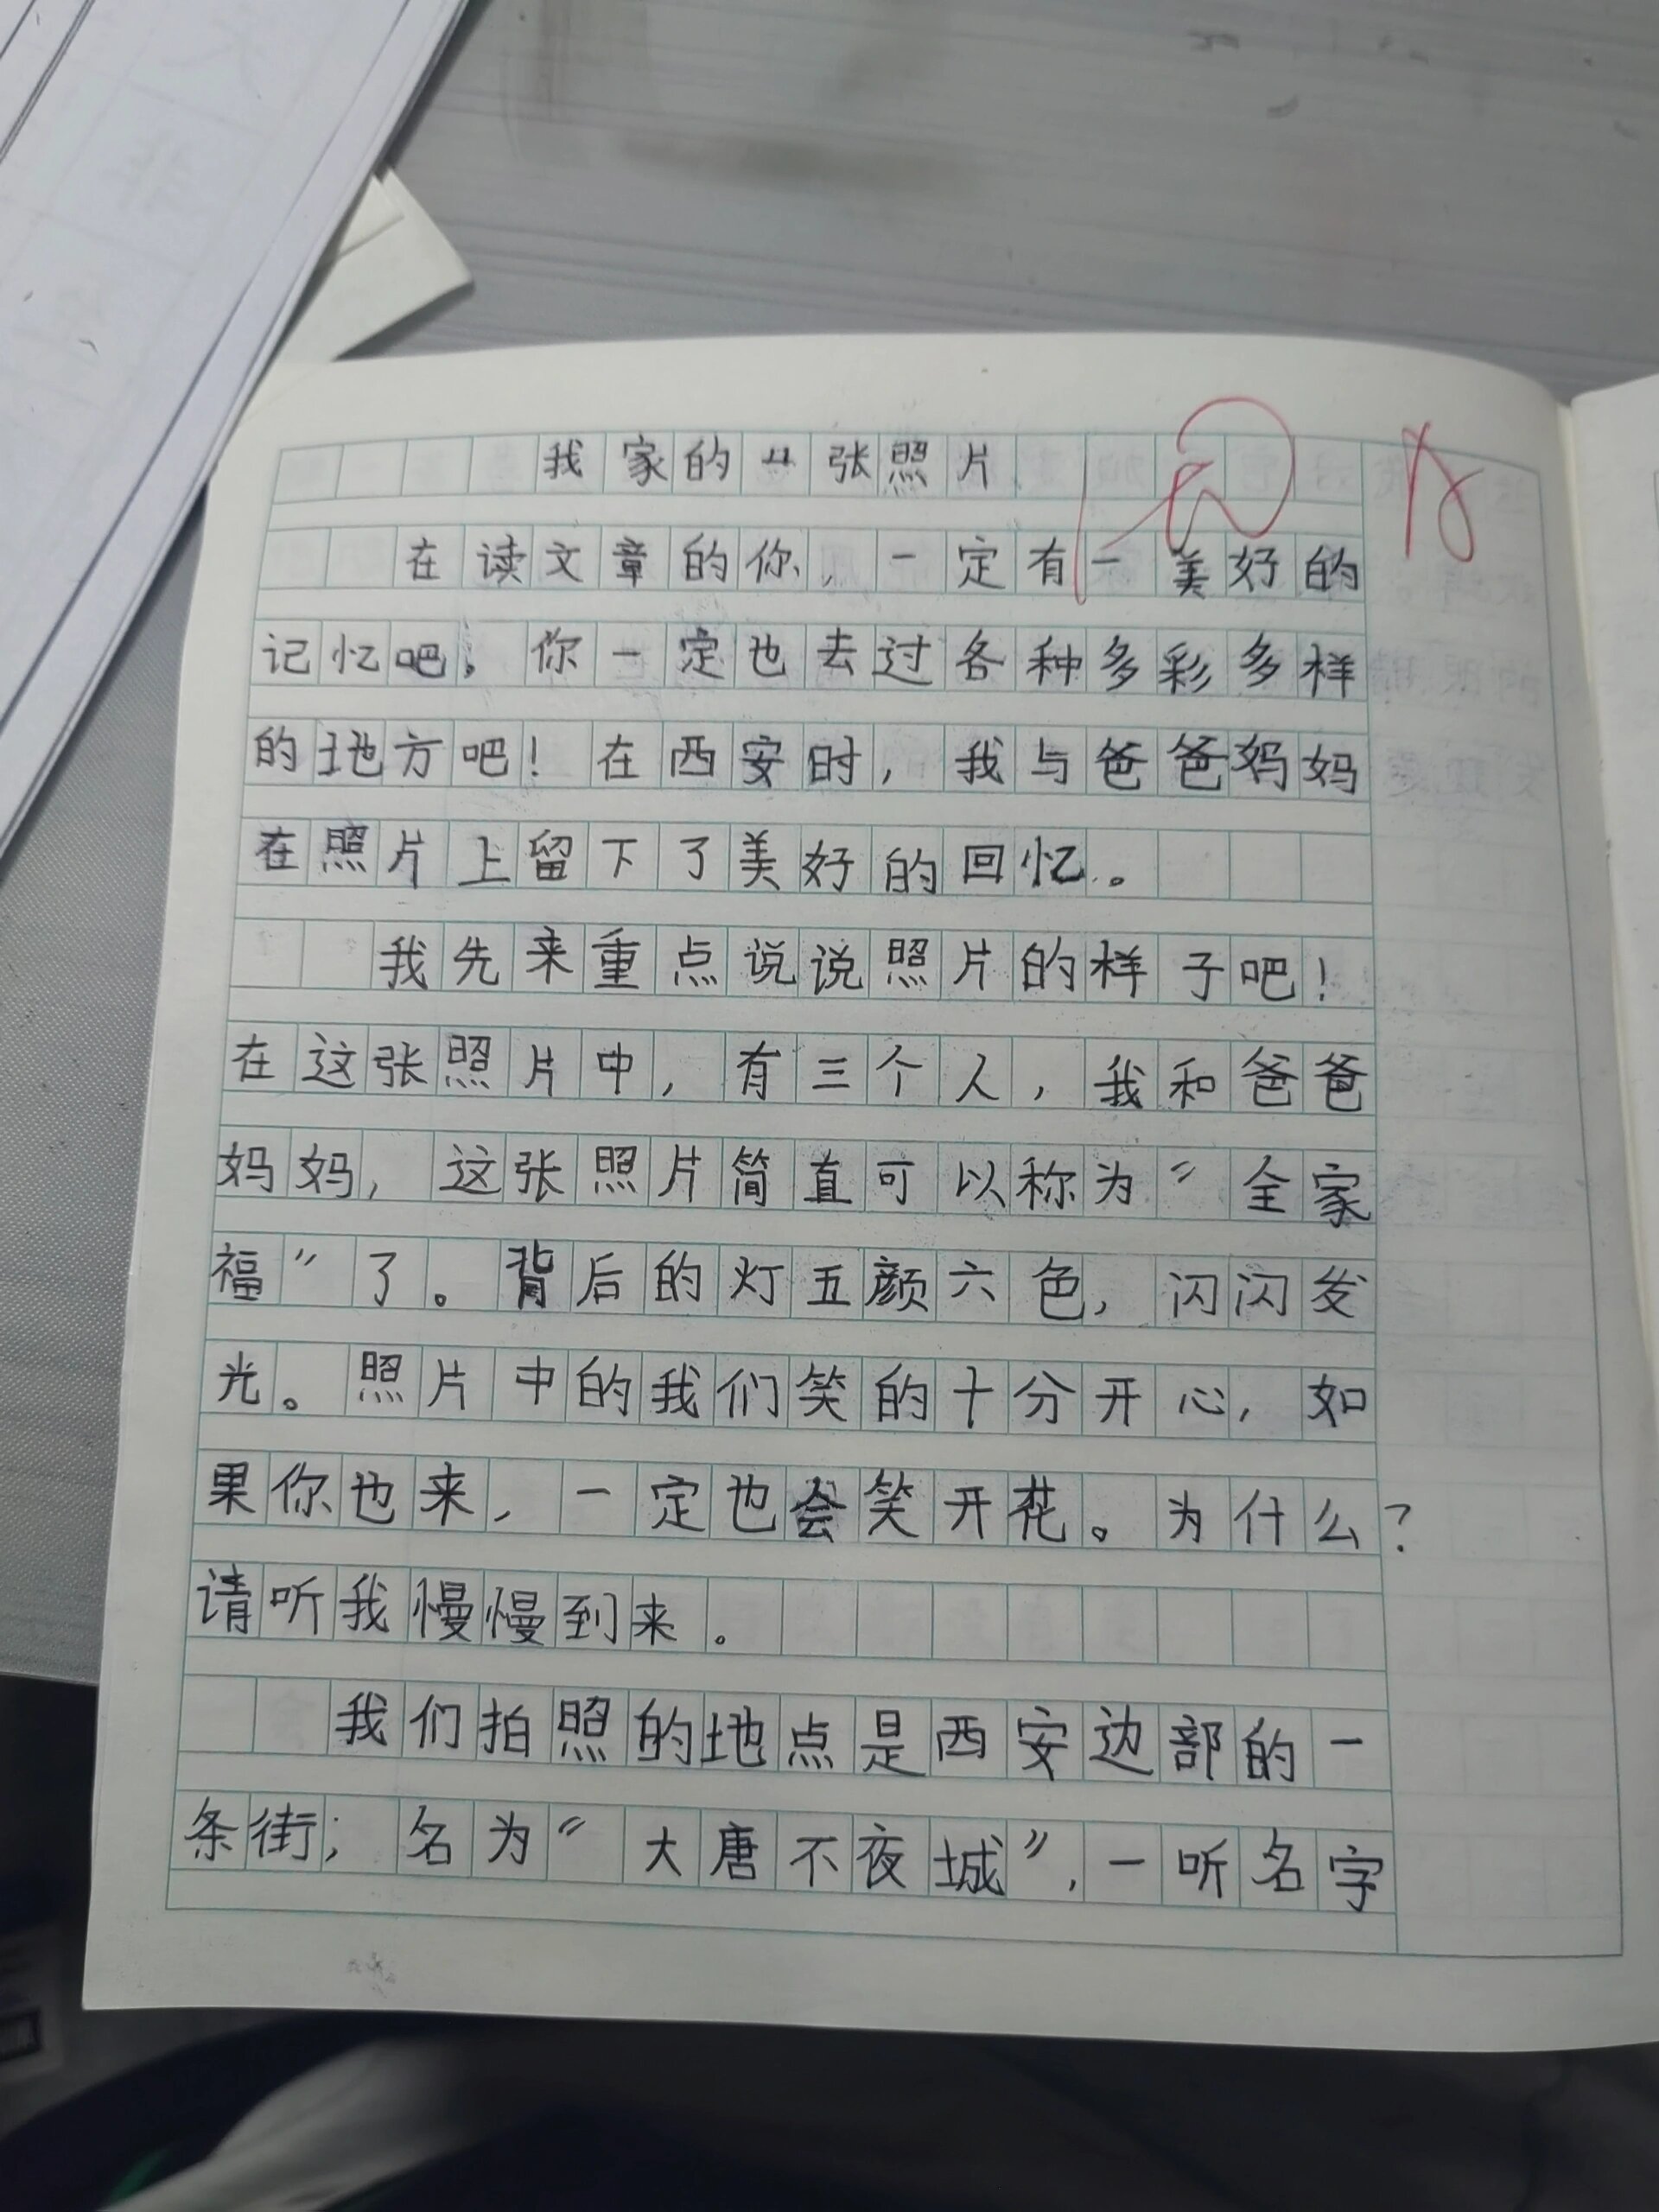 我家的一张照片
在读文章的你，一定有一美好的
记忆吧。你一定也去过各种多彩多样
的地方吧！在西安时，我与爸爸妈妈
在照片上留下了美好的回忆。
我先来重点说说照片的样子吧！
在这张照片中，有三个人，我和爸爸
妈妈，这张照片简直可以称为“全家
福”了。背后的灯五颜六色，闪闪发
光。照片中的我们笑的十分开心，如
果你也来，一定也会笑开花。为什么？
请听我慢慢到来。
我们拍照的地点是西安边部的一
条街；名为“大唐不夜城”，一听名字